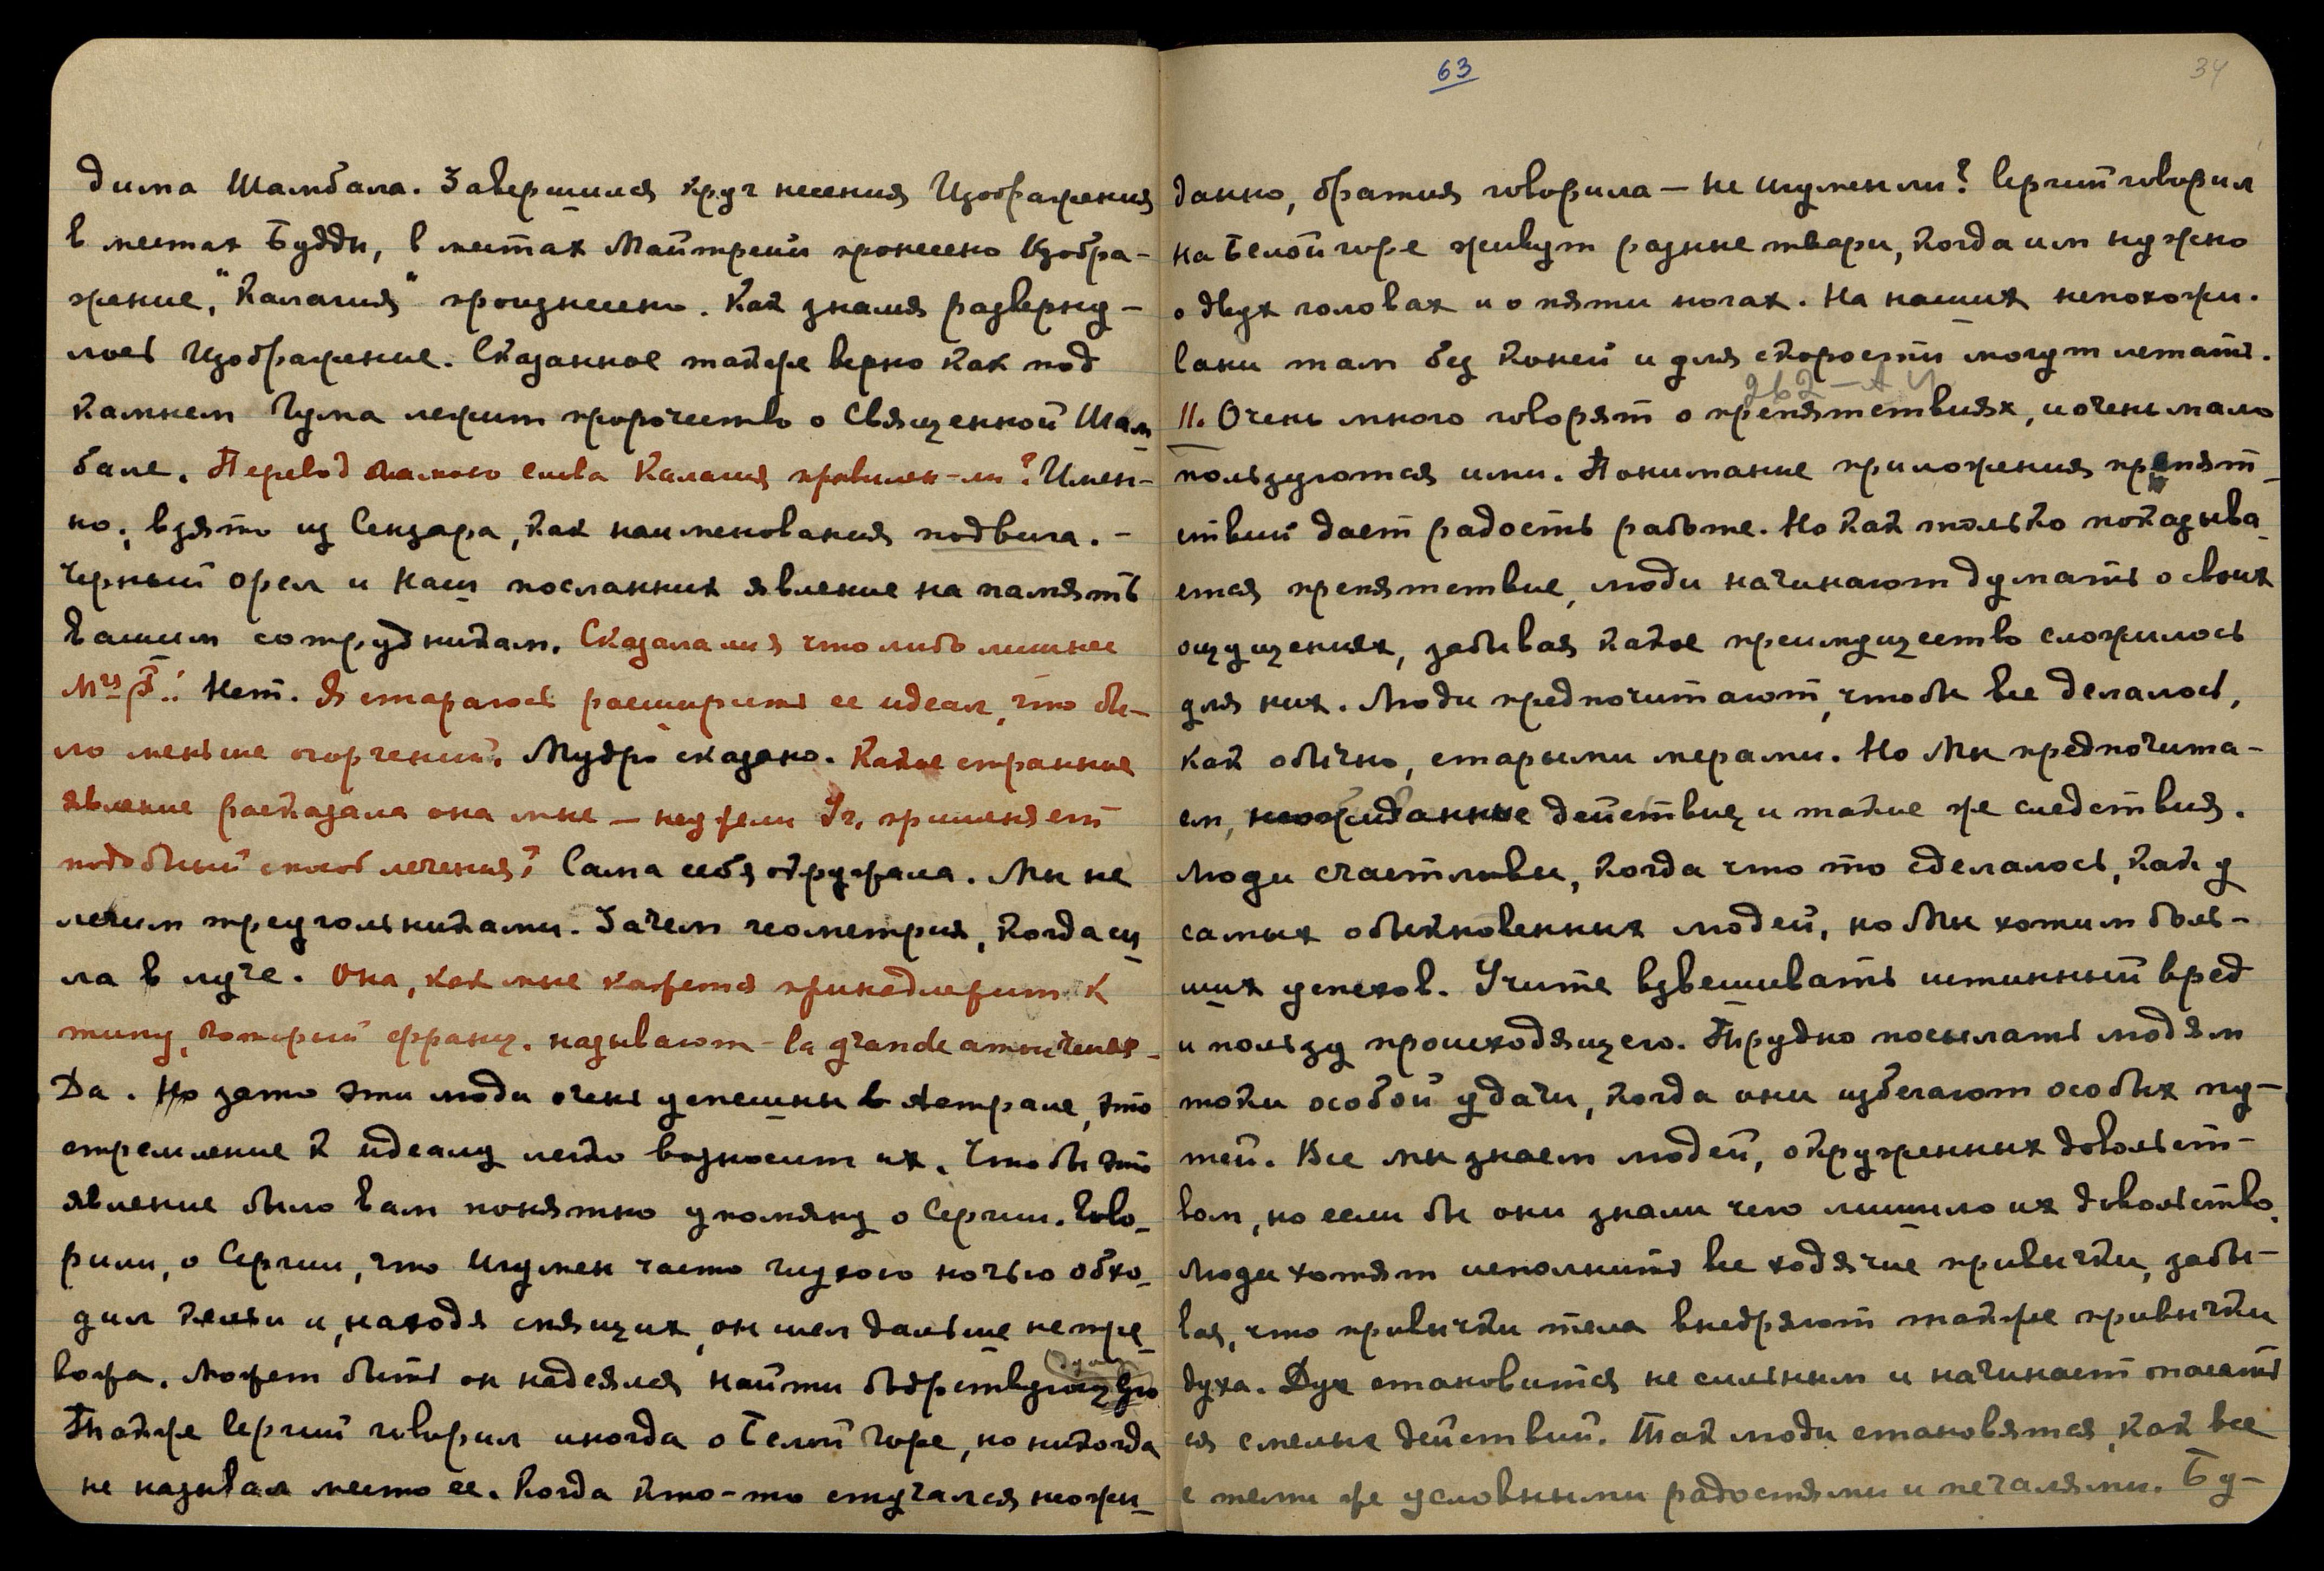 дима Шамбала. Завершился круг несения Изображения
в местах Будды, в местах Майтрейи пронесено Изобра-
жение, "Калагия" произнесено. Как знамя разверну-
лось Изображение. Сказанное также верно как под
камнем Гума лежит пророчество о Священной Шам
бале. Перевод самого слова Калагия правилен-ли? Имен-
но, взято из Сензара, как наименования подвига. -
Черный орел и Наш посланник явление на память
Вашим сотрудникам. Сказала ли я что либо лишнее
Нет. Я старалась расширить ее идеал, что бы-
ло меньше огорчений. Мудро сказано. Какое странное
явление рассказала она мне — неужели Уч. применяет
подобный способ лечения? Сама себя окружала. Мы не
лечим треугольниками. Зачем геометрия, когда си
ла в луче. Она, как мне кажется принадлежит к
типу, который франц. называют - la grande
Да. Но зато эти люди очень успешны в Астрале, это
стремление к идеалу легко возносит их. Чтобы это
явление было Вам понятно упомяну о Сергии. Гово-
рили, о Сергии, что Игумен часто глухою ночью обхо-
дил келии и, находя спящих, он шел дальше не тре-
вожа. Может быть он надеялся найти бодрствующую
Также Сергий говорил иногда о Белой Горе, но никогда
не называл место ее. Когда кто-то стучался неожи-
63
34
данно, братия говорила — не игумен ли? Сергий говорил
на Белой горе живут разные твари, когда им нужно
о двух головах и о пяти ногах. На наших непохожи.
Сани там без коней и для скорости могут летать.
262 - А Й
11. Очень много говорят о препятствиях, и очень мало
пользуются ими. Понимание приложения препят-
ствий дает радость работе. Но как только показыва
ется препятствие, люди начинают думать о своих
ощущениях, забывая какое преимущество сложилось
для них. Люди предпочитают, чтобы все делалось,
как обычно, старыми мерами. Но Мы предпочита-
ем, неожиданные действия и такие же следствия.
Люди счастливы, когда что то сделалось, как у
самых обыкновенных людей, но Мы хотим боль-
ших успехов. Учите взвешивать истинный вред
и пользу происходящего. Трудно посылать людям
токи особой удачи, когда они избегают особых пу-
тей. Все мы знаем людей, окруженных довольст-
вом, но если бы они знали чего лишило их довольство.
Люди хотят исполнить все ходячие привычки, забы-
вая, что привычки тела внедряют также привычки
духа. Дух становится не сильным и начинает опасать
ся смелых действий. Так люди становятся, как все
с теми же условными радостями и печалями. Бу-